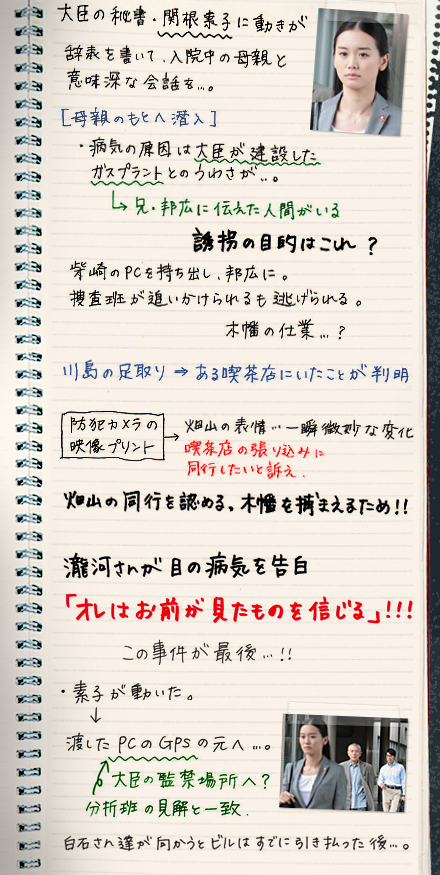 大臣の秘書・関根素子に動きが
辞表を書いて、入院中の母親と
意味深な会話を…。
[母親のもとへ潜入]
・病気の原因は大臣が建設した
ガスプラントとのうわさが…。
↳兄・邦広に伝えた人間がいる
誘拐の目的はこれ?
柴崎のPCを持ち出し、邦広に。
捜査班が追いかけられるも逃げられる。
木幡の仕業…?
川島の足取り→ある喫茶店にいたことが判明
防犯カメラの
映像プリント
→畑山の表情…一瞬微妙な変化
喫茶店の張り込みに
同行したいと訴え.
畑山の同行を認める。木幡を捕まえるため!!
瀧河さんが目の病気を告白
「オレはお前が見たものを信じる」!!!
この事件が最後…!!
・素子が動いた。
↓
渡したPCのGPSの元へ…。
大臣の監禁場所へ?
分析班の見解と一致.
白石さん達が向かうとビルはすでに引き払った後…。